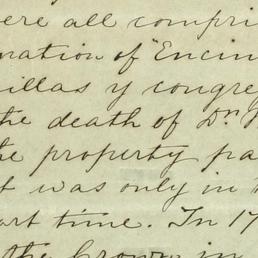 ere all compri
nation of "Encin
illas y congre
the death of Dn
he property pa
t was only in
art time. In 17
the Crown in